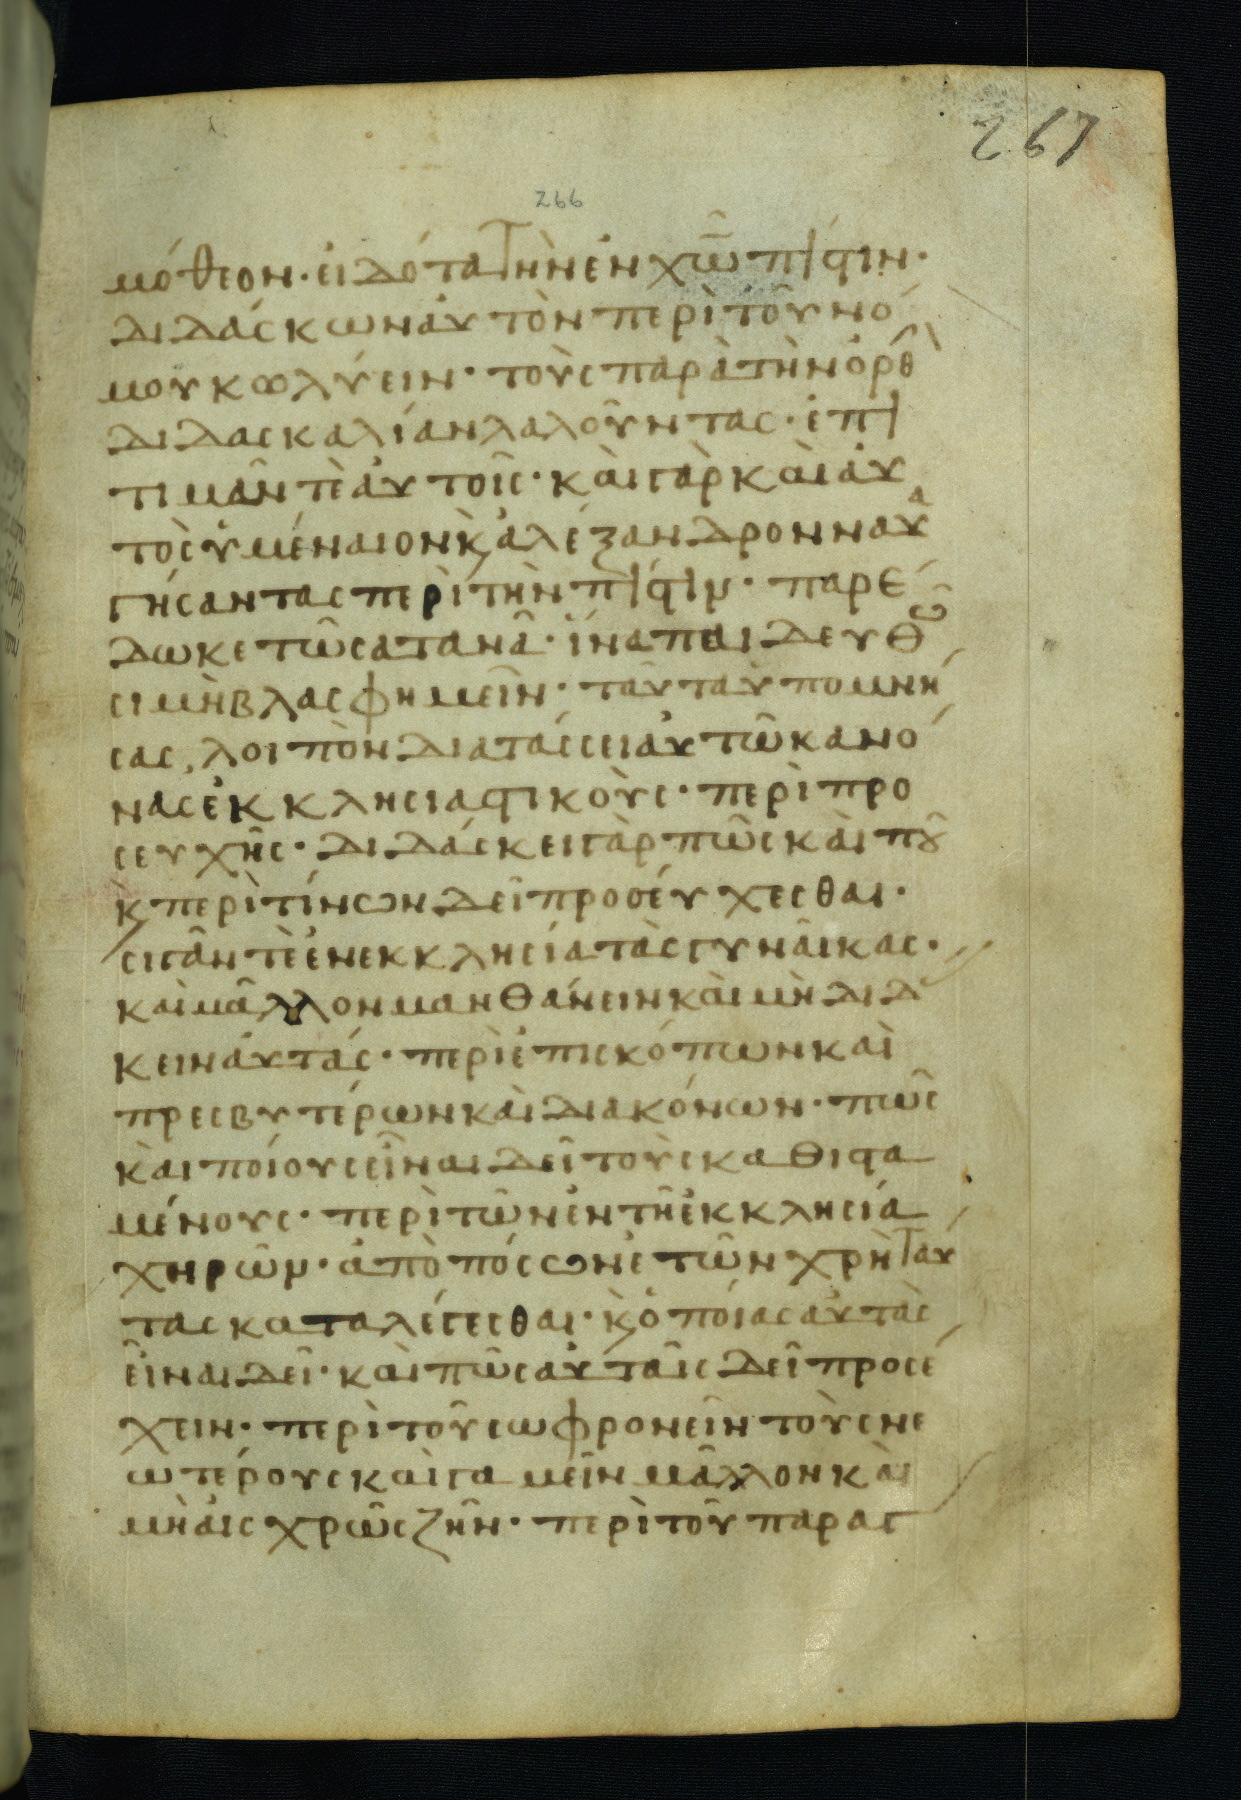 267
266
μόθεον· εἰδότα τὴν ἐν χω̅ πίστιν·
διδάσκων αὐτὸν περὶ τοῦ νό
μου κωλύειν· τοὺς παρὰ τὴν ὀρθὴ
διδασκαλίαν λαλοῦντας· ἐπι
τιμᾶν τὲ αὐτοῖς· καὶ γὰρ καὶ αὐ
τὸς ὑμέναιον κ̀ ἀλέξανδρον ναυα
γήσαντας περὶ τὴν πίστιν· παρέ
δωκε τῶ σατανᾶ· ἵνα παιδευθῶ
σι μὴ βλασφημεῖν· ταῦτα ὑπομνή
σας, λοιπὸν διατάσσει αὐτῶ κανό
νας ἐκκλησιαστικοὺς· περὶ προ
σευχῆς· διδάσκει γὰρ πῶς καὶ πȣ͂
κ̀ περὶ τίνων δεῖ προσεύχεσθαι·
σιγᾶν τὲ ἐν εκκλησία τὰς γυνᾶικας·
καὶ μᾶλλον μανθάνειν καὶ μὴ διδά
κειν αὐτάς· περὶ ἐπισκόπων καὶ
πρεσβυτέρων καὶ διακόνων· πῶς
καὶ ποίους εἶναι δεῖ τοὺς καθιστα
μένους· περὶ τῶν ἐν τῆ ἐκκλησία
χηρῶν· ἀπὸ πόσων ἐτῶν χρὴ ταύ
τας καταλέγεσθαι· κ̀ ὁποίας αὐτὰς
εἶναι δεῖ· καὶ πῶς αὐταῖς δεῖ προσέ
χειν· περὶ τοῦ σωφρονεῖν τοὺς νε
ωτέρους καὶ γαμεῖν μᾶλλον καὶ
μὴ αἰσχρῶς ζῆν· περὶ τοῦ παραγ